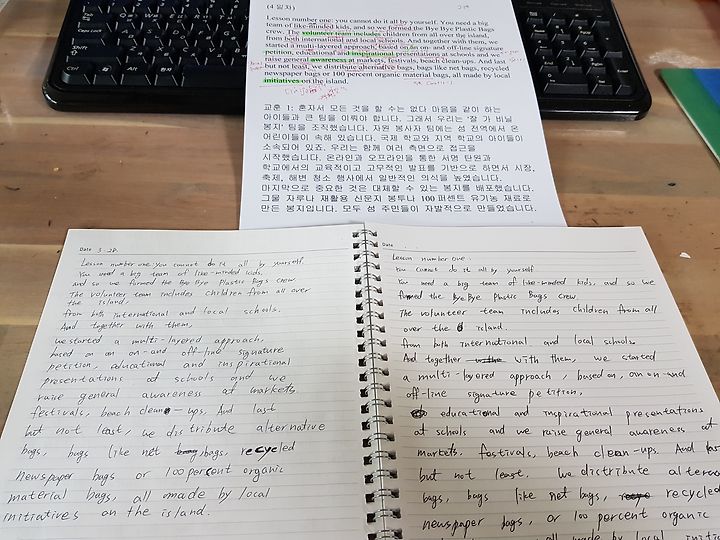 (4일차)
Lesson number one: you cannot do it all by yourself. You need a big
team of like-minded kids, and so we formed the Bye Bye Plastic Bags
crew. The volunteer team includes children from all over the island,
from both international and local schools. And together with them, we
started a multi-layered approach, based on an on- and off-line signature
petition, educational and inspirational presentations at schools and we
raise general awareness at markets, festivals, beach clean-ups. And last
but not least, we distribute alternative bags, bags like net bags, recycled
newspaper bags or 100 percent organic material bags, all made by local
initiatives on the island.
교훈 1: 혼자서 모든 것을 할 수는 없다 마음을 같이 하는
아이들과 큰 팀을 이뤄야 합니다. 그래서 우리는 '잘 가 비닐
봉지' 팀을 조직했습니다. 자원 봉사자 팀에는 섬 전역에서 온
어린이들이 속해 있습니다. 국제 학교와 지역 학교의 아이들이
소속되어 있죠. 우리는 함께 여러 측면으로 접근을
시작했습니다. 온라인과 오프라인을 통한 서명 탄원과
학교에서의 교육적이고 고무적인 발표를 기반으로 하면서 시장,
축제, 해변 청소 행사에서 일반적인 의식을 높였습니다.
마지막으로 중요한 것은 대체할 수 있는 봉지를 배포했습니다.
그물 자루나 재활용 신문지 봉투나 100 퍼센트 유기농 재료로
만든 봉지입니다. 모두 섬 주민들이 자발적으로 만들었습니다.
Date 3. 28.
Lesson number one: you cannot do it all by yourself.
You need a big team of like-minded kids,
and so we formed the Bye Bye Plastic Bags crew
The volunteer team includes children from all over
the island.
from both international and local schools.
And together with them,
we started a multi-layered approach,
based on an on- and off-line signature
petition, educational and inspirational
presentations at schools and we
raise general awareness at markets
festivals, beach clean-ups. And last
but not least, we distribute alternative
bags, bags like net bags, recycled
newspaper bags or 100 percent organic
material bags, all made by local
initiatives on the island.
Date
Lesson number one
You cannot do it all by yourself
You need a big team of like-minded kids, and so we
formed the Bye Bye Plastic Bags crew.
The volunteer team includes children from all
over the island.
from both international and local schools
And together with them, we started
a multi-layered approach, based on, an on-and
off-line signature petition,
educational and inspirational presentations
at schools and we raise general awareness at
markets, festivals, beach clean-ups. And las
but not least. we distribute alterna
bags, bags like net bags, recycled
newspaper bags, or 100 percent organic
all made by local initi